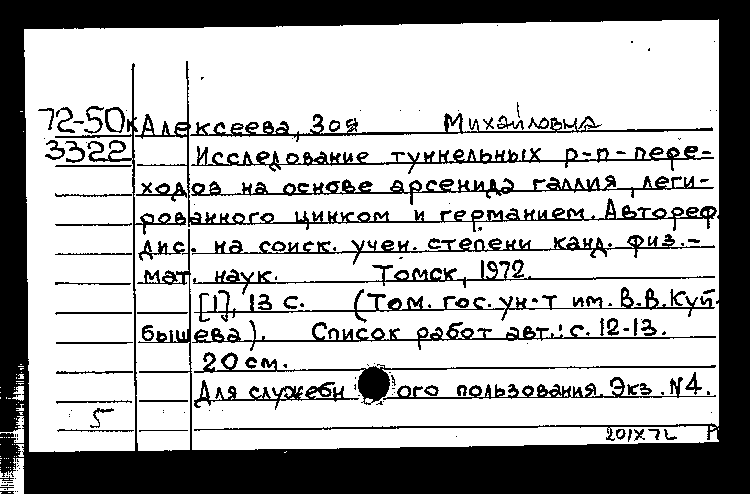 72-50к Алексеева, Зоя Михайловна
3322 Исследование туннельных p-n-пере-
ходов на основе арсенида галлия, леги-
рованного цинком и германием. Автореф.
дис. на соиск. учен. степени канд. физ.-
мат. наук. Томск, 1972.
[1], 13 с. (Том. гос. ун-т им. В.В.Куй-
бышева). Список работ авт.: с. 12-13.
20 см.
Для служебн ого пользования. Экз. №4.
5